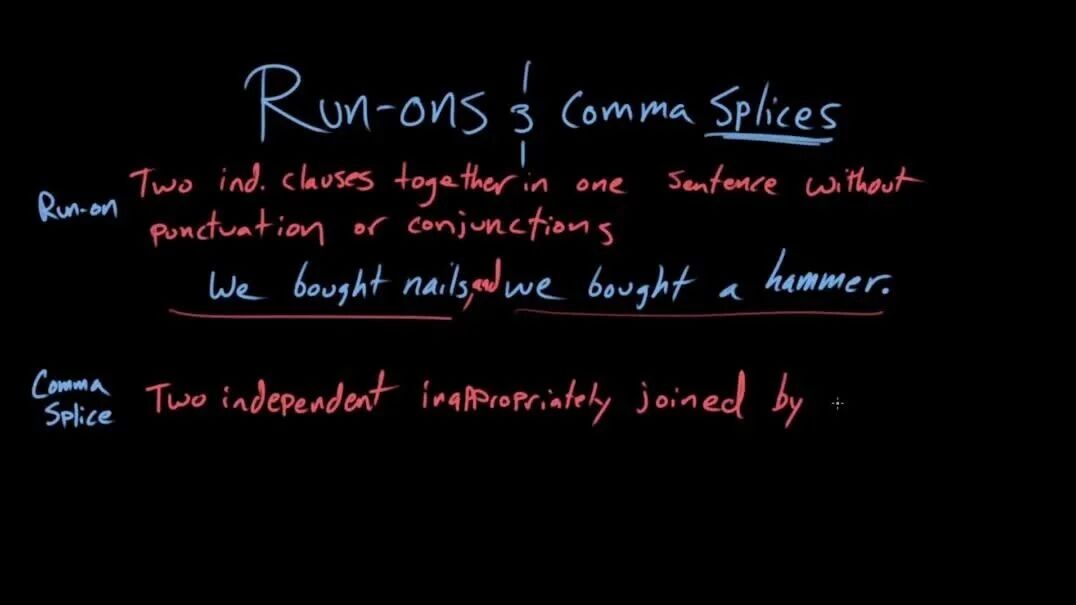 Run-ons & Comma Splices
Run-on
Two ind. clauses together in one sentence without
punctuation or conjunctions
We bought nails, and we bought a hammer.
Comma
Splice
Two independent inappropriately joined by